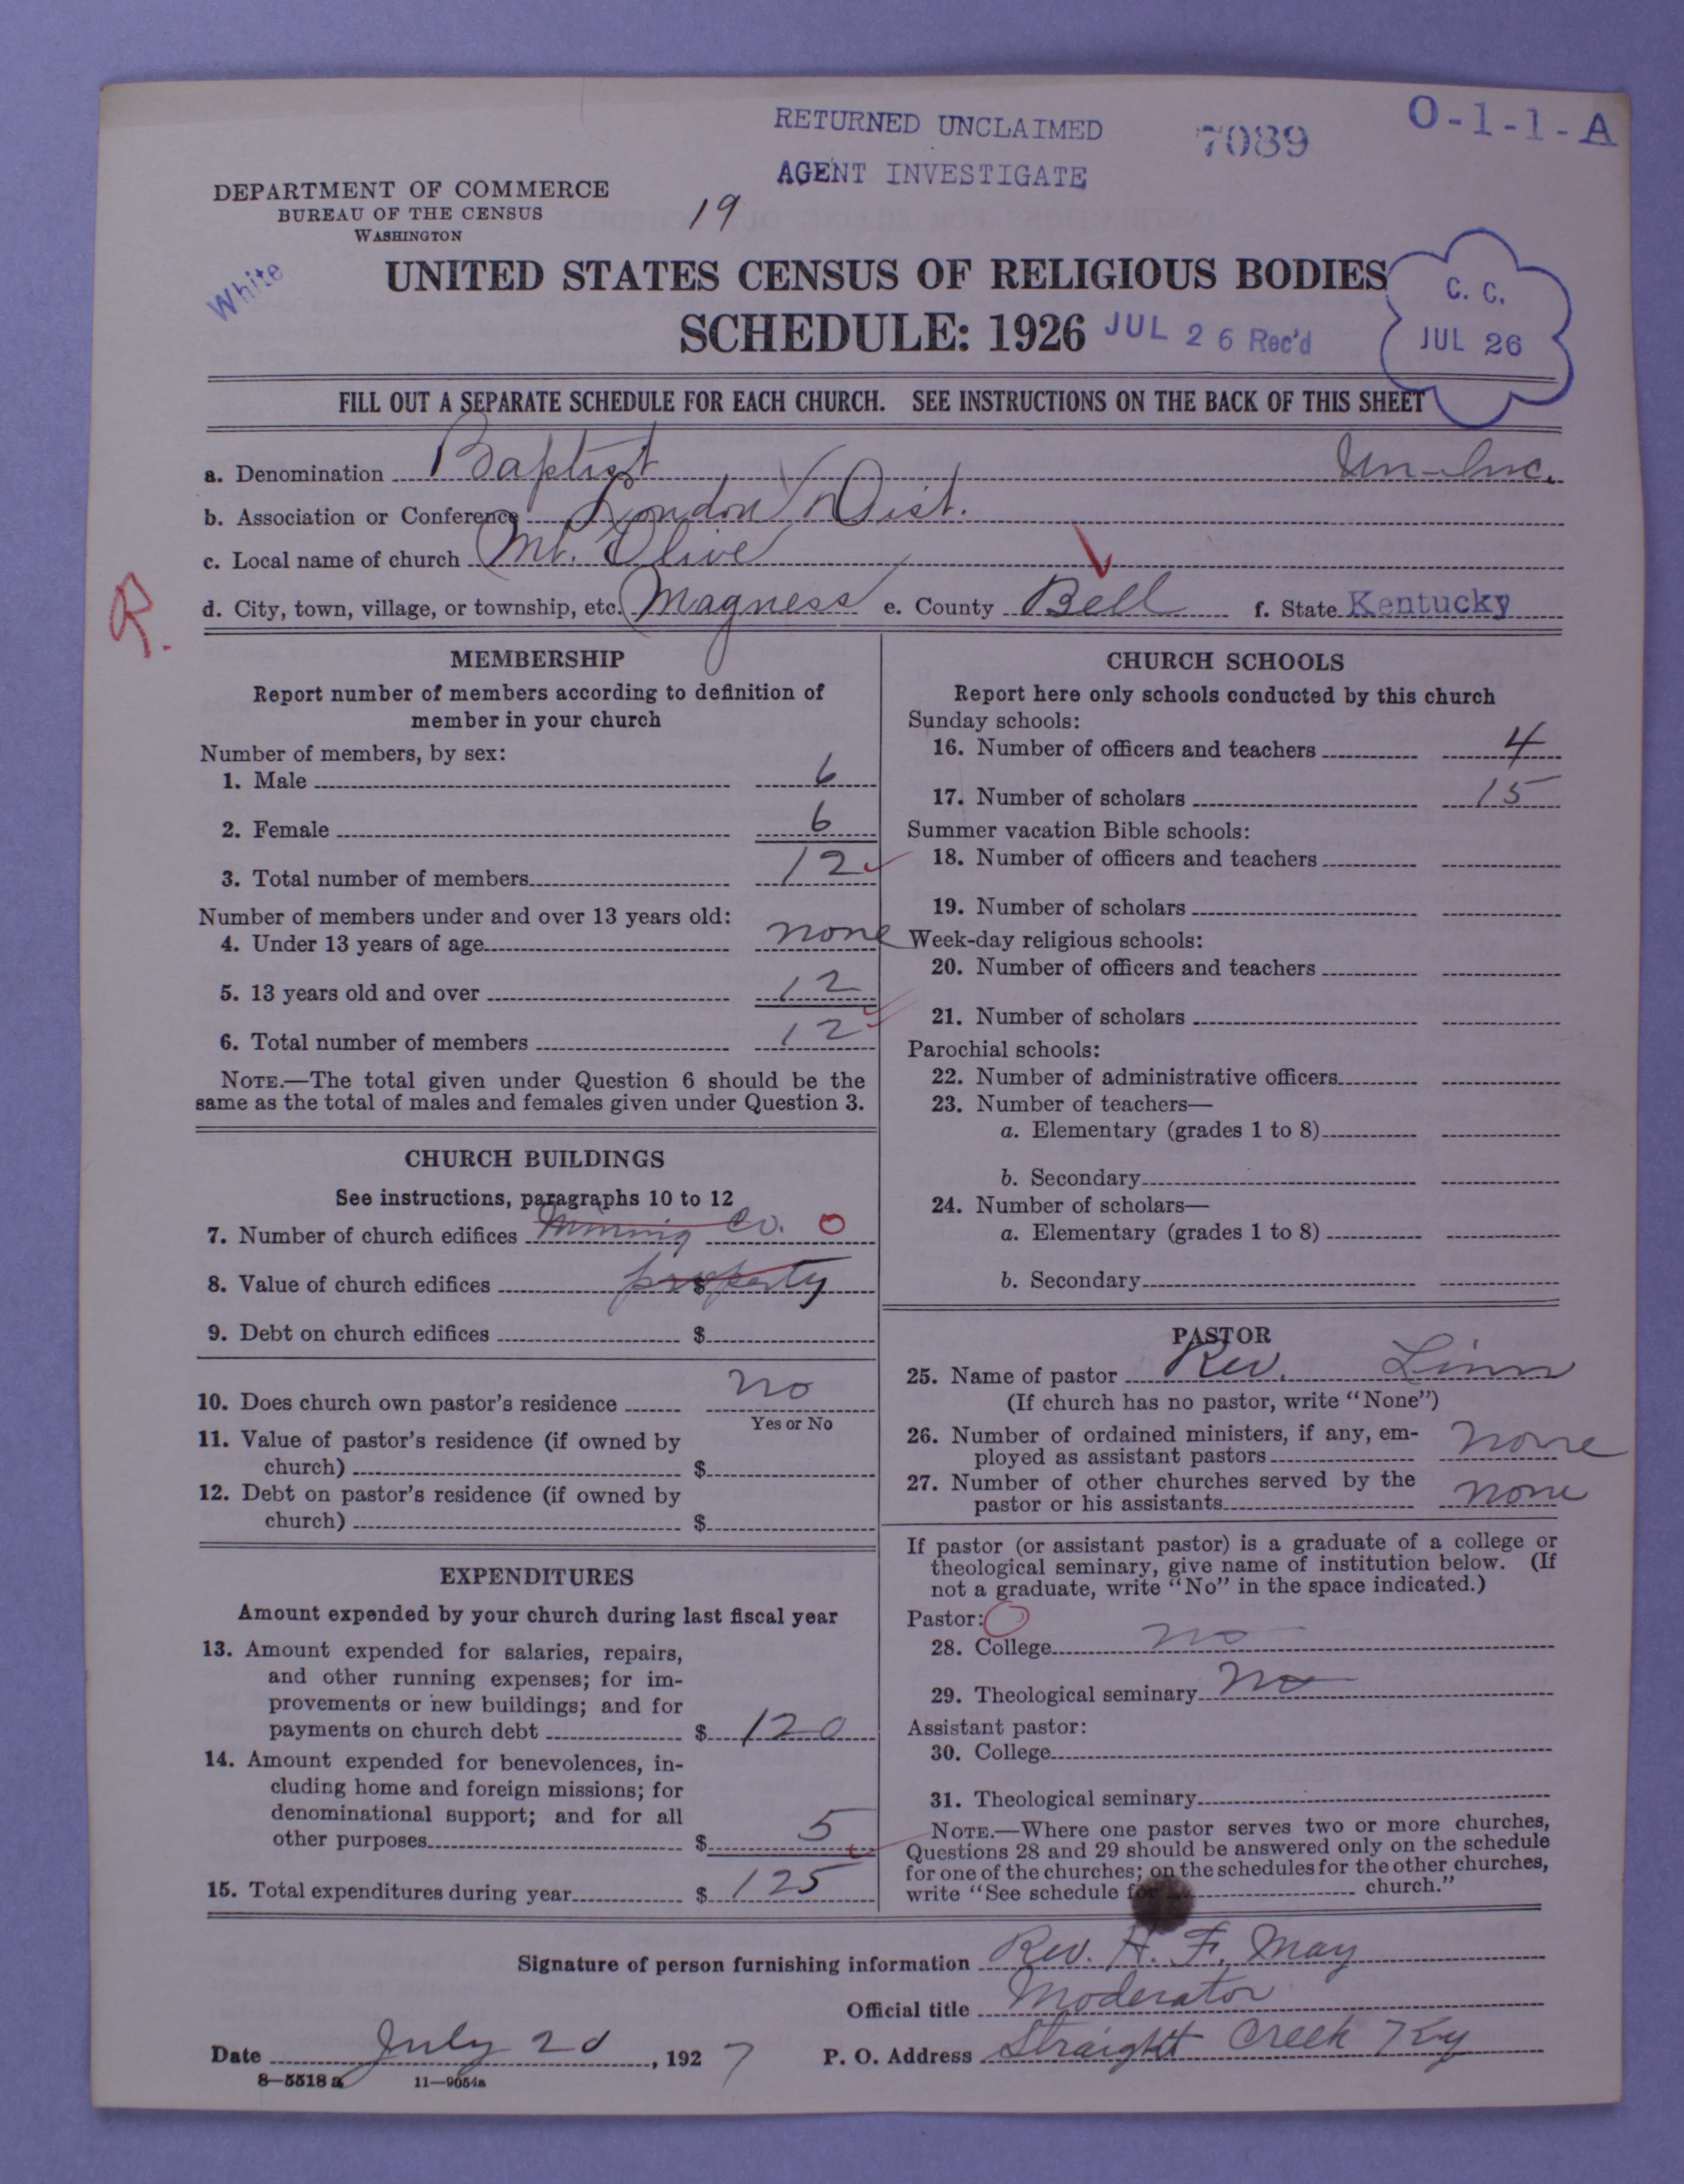 RETURNED UNCLAIMED
AGENT INVESTIGATE
7089
O-1-1-A
DEPARTMENT OF COMMERCE
BUREAU OF THE CENSUS
WASHINGTON
19
White
UNITED STATES CENSUS OF RELIGIOUS BODIES
SCHEDULE: 1926
JUL 26 Rec'd
C. C.
JUL 26
FILL OUT A SEPARATE SCHEDULE FOR EACH CHURCH. SEE INSTRUCTIONS ON THE BACK OF THIS SHEET
a. Denomination Baptist Un-Inc.
b. Association or Conference London Dist.
c. Local name of church Mt. Olive
R.
d. City, town, village, or township, etc. Magness e. County Bell f. State Kentucky
MEMBERSHIP
Report number of members according to definition of
member in your church
Number of members, by sex:
1. Male 6
2. Female 6
3. Total number of members 12
Number of members under and over 13 years old:
4. Under 13 years of age none
5. 13 years old and over 12
6. Total number of members 12
NOTE.—The total given under Question 6 should be the
same as the total of males and females given under Question 3.
CHURCH BUILDINGS
See instructions, paragraphs 10 to 12
7. Number of church edifices Mining Co. 0
8. Value of church edifices $ property
9. Debt on church edifices $
10. Does church own pastor's residence no
Yes or No
11. Value of pastor's residence (if owned by
church) $
12. Debt on pastor's residence (if owned by
church) $
EXPENDITURES
Amount expended by your church during last fiscal year
13. Amount expended for salaries, repairs,
and other running expenses; for im-
provements or new buildings; and for
payments on church debt $ 120
14. Amount expended for benevolences, in-
cluding home and foreign missions; for
denominational support; and for all
other purposes $ 5
15. Total expenditures during year $ 125
CHURCH SCHOOLS
Report here only schools conducted by this church
Sunday schools:
16. Number of officers and teachers 4
17. Number of scholars 15
Summer vacation Bible schools:
18. Number of officers and teachers
19. Number of scholars
Week-day religious schools:
20. Number of officers and teachers
21. Number of scholars
Parochial schools:
22. Number of administrative officers
23. Number of teachers—
a. Elementary (grades 1 to 8)
b. Secondary
24. Number of scholars—
a. Elementary (grades 1 to 8)
b. Secondary
PASTOR
25. Name of pastor Rev. Linn
(If church has no pastor, write "None")
26. Number of ordained ministers, if any, em-
ployed as assistant pastors none
27. Number of other churches served by the
pastor or his assistants none
If pastor (or assistant pastor) is a graduate of a college or
theological seminary, give name of institution below. (If
not a graduate, write "No" in the space indicated.)
Pastor:
28. College no
29. Theological seminary no
Assistant pastor:
30. College
31. Theological seminary
NOTE.—Where one pastor serves two or more churches,
Questions 28 and 29 should be answered only on the schedule
for one of the churches; on the schedules for the other churches,
write "See schedule for church."
Signature of person furnishing information Rev. H. F. May
Official title Moderator
Date July 20, 1927 P. O. Address Straight Creek Ky
8-5518 a 11-9054a